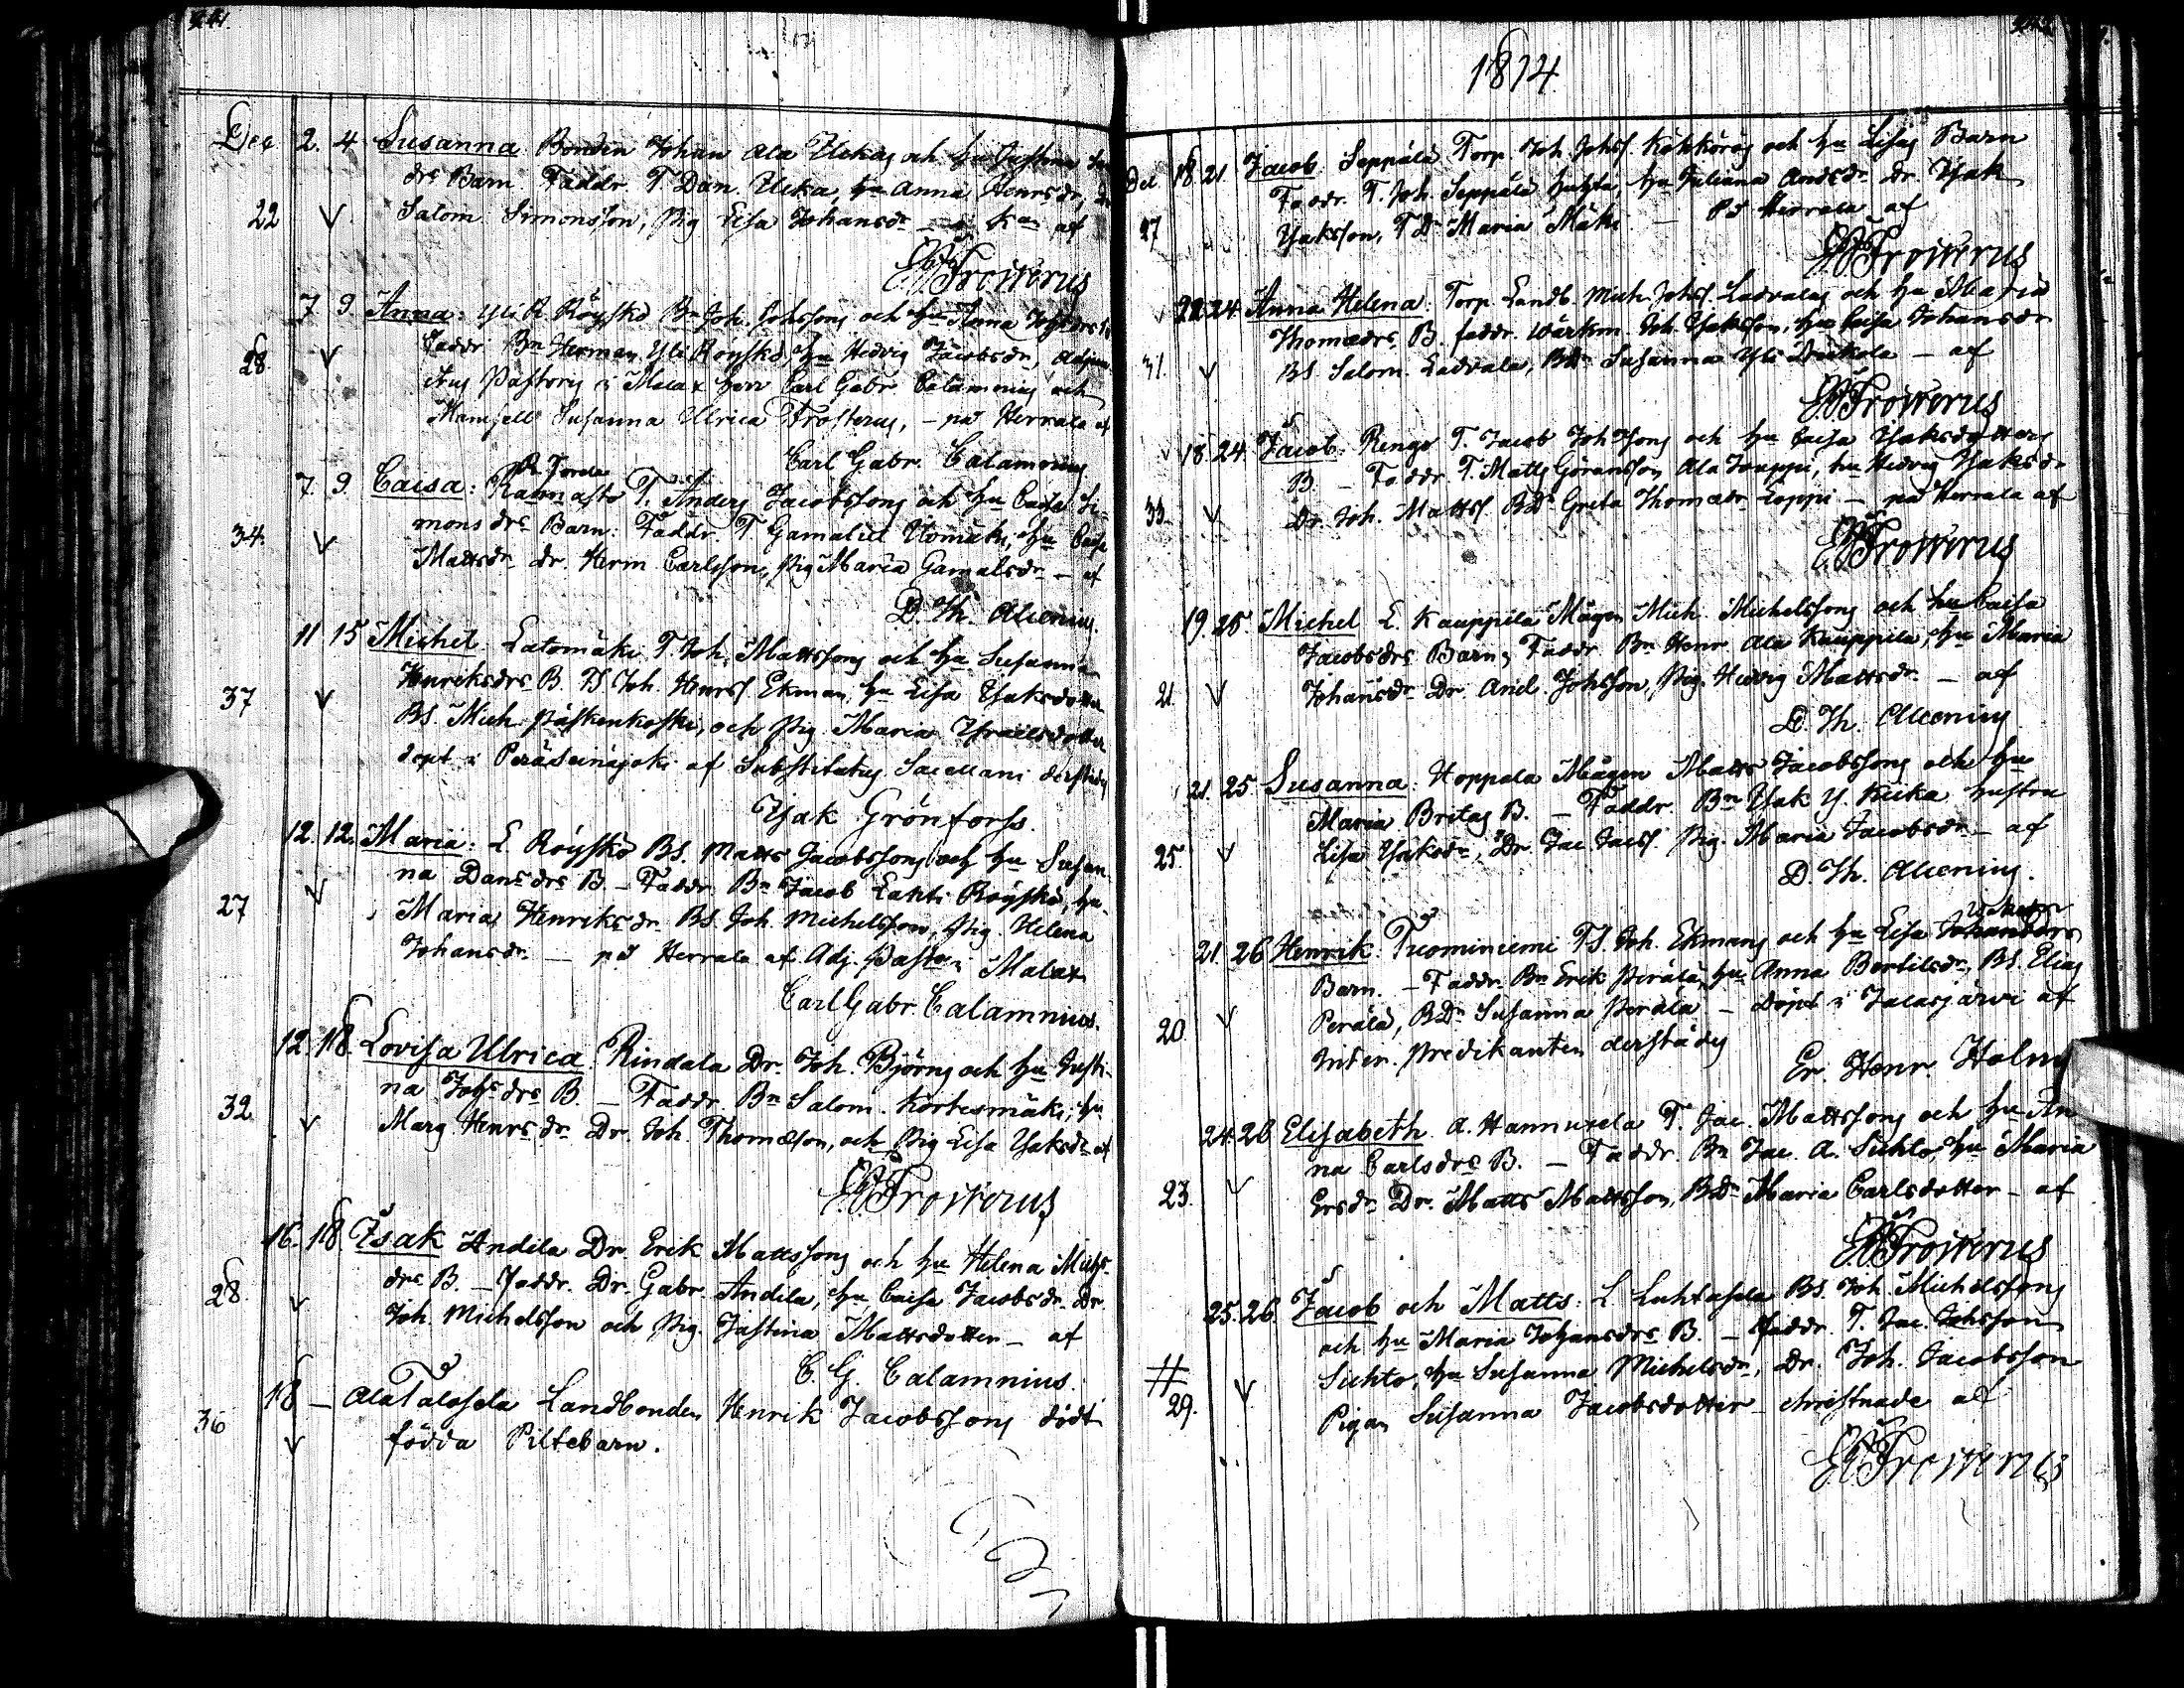 Dec 2. 4 Susanna Bonden Johan Ala Ulckas och Hu Justina
drs Barn. Faddr. T. Dan. Ulcka, Hu Anna Henrsdr,
22 Salom. Simonsson, Pig Lisa Johansdr – af
Frosterus
7 9. Anna: Yli R Röyskö Bn Joh. Johssons och Hu Anna
28. Faddr Bn Herman Yli Röyskö, Hu Hedvig Jacobsdr,
Pastorn i Malax Herr Carl Gabr. Calamnius och
Mamsell Susanna Ulrica Frosterus, – på Herrala af
Carl Gabr. Calamnius
7. 9 Caisa: T. Anders Jacobssons och Hu Caisa Si-
34. mons drs Barn: Faddr. T Gamaliel Homäki, Hu Caisa
Mattsdr Dr. Herm Carlsson, Pig Maria Gamalsdr – af
D. Th. Alcenius.
11 15 Michel Latomäki T. Joh. Mattssons och Hu Susanna
37 Henriksdrs B. TS Joh. Henrss. Ekman, Hu Lisa Isaksdotter
BS. Mich. Päskenkoski, och Pig Maria Israelsdotter
döpt i Peräseinäjoki af Substitutus Sacellani derstädes
Isak Grönforss.
12. 12. Maria: L Röyskö BS. Matts Jacobssons och Hu Susan-
na Dansdrs B. – Faddr Bn Jacob Lahti Röyskö, Hu
27 Maria Henriksdr. BS. Joh. Michelsson, Pig. Helena
Johansdr – på Herrala af Adj. Past. i Malax
Carl Gabr. Calamnius.
12. 18. Lovisa Ulrica. Rindala Dr. Joh. Björns och Hu Justi-
na Johs drs B. – Faddr. Bn Salom. Kortesmäki, Hu
32 Marg. Henrsdr Dr. Joh. Thomæson, och Pig Lisa Isaksdr af
Frosterus
16. 18. Isak Andila Dr. Erik Mattssons och Hu Helena Michs-
drs B. – Faddr. Dr. Gabr. Andila, Hu Caisa Jacobsdr. Dr
28. Joh. Michelsson och Pig. Justina Mattsdotter – af
C. G. Calamnius.
18 – Ala Talasela Landbonden Henrik Jacobssons död
36 födda Piltebarn.
1814
Dec 18. 21 Jacob Seppälä Torp. Joh. Johss. Kökkörös och Hu Lisas Barn
Faddr. T. Joh. Seppälä Huhta, Hu Juliana Andsdr. Dr. Isak
27 Isaksson, T Dr Maria Mäki – På Herrala af
Frosterus
22. 24 Anna Helena. Torp Landb. Mich. Johss. Ladvalas och Hu Maria
Thomædrs B. Faddr. Joh. Isaksson, Hu Caisa Johansdr
BS. Salom. Ladvala, BDr Susanna Yli – af
Frosterus
18. 24. Jacob. Rengo T. Jacob och Hu Caisa Isaksdotters
B. – Faddr. T. Matts Göransson Ala Jouppi, Hu Hedvig Isaksdr
Dr. Joh. Mattss. BDr Greta Thomædr Loppi – på Herrala af
Frosterus
19. 25 Michel L. Kauppila Mågen Mich. Michelssons och Hu Caisa
Jacobsdrs Barn, Faddr. Bn Henr. Ala Kauppila, Hu Maria
21. Johansdr Dr. And. Johsson, Pig. Hedvig Mattsdr – af
D. Th. Alcenius
21. 25 Susanna: Hoppala Mågen Matts Jacobssons och Hu
Maria Britas B. – Faddr. Bn Isak Y. Kuka hustru
25. Lisa Isaksdr, Dr. Jac Jacss. Pig. Maria Jacobsdr – af
D. Th. Alcenius.
21. 26 Henrik. Tuominiemi TS. Joh. Ekmans och Hu Lisa Johansdrs
Barn. – Faddr. Bn Erik Perälä, Hu Anna Bertilsdr, BS. Elias
20 Perälä, BDr Susanna Perälä – Döpt i Jalasjärvi af
Inter. Predikanten derstädes
Er. Henr. Holm
24. 26 Elisabeth. A. Hannuxela T. Jac. Mattssons och Hu An-
na Carlsdrs B. – Faddr. Bn Jac. A. Luhto, Hu Maria
23. Ersdr. Dr. Matts Mattsson, BDr Maria Carlsdotter – af
Frosterus
25. 26. Jacob och Matts: L Luhtasela BS. Joh. Michelssons
och Hu Maria Johansdrs B. – Faddr. T. Jac. Johsson
# Luhto, Hu Susanna Michelsdr, Dr. Joh. Jacobsson
29. Pigan Susanna Jacobsdotter christnade af
Frosterus